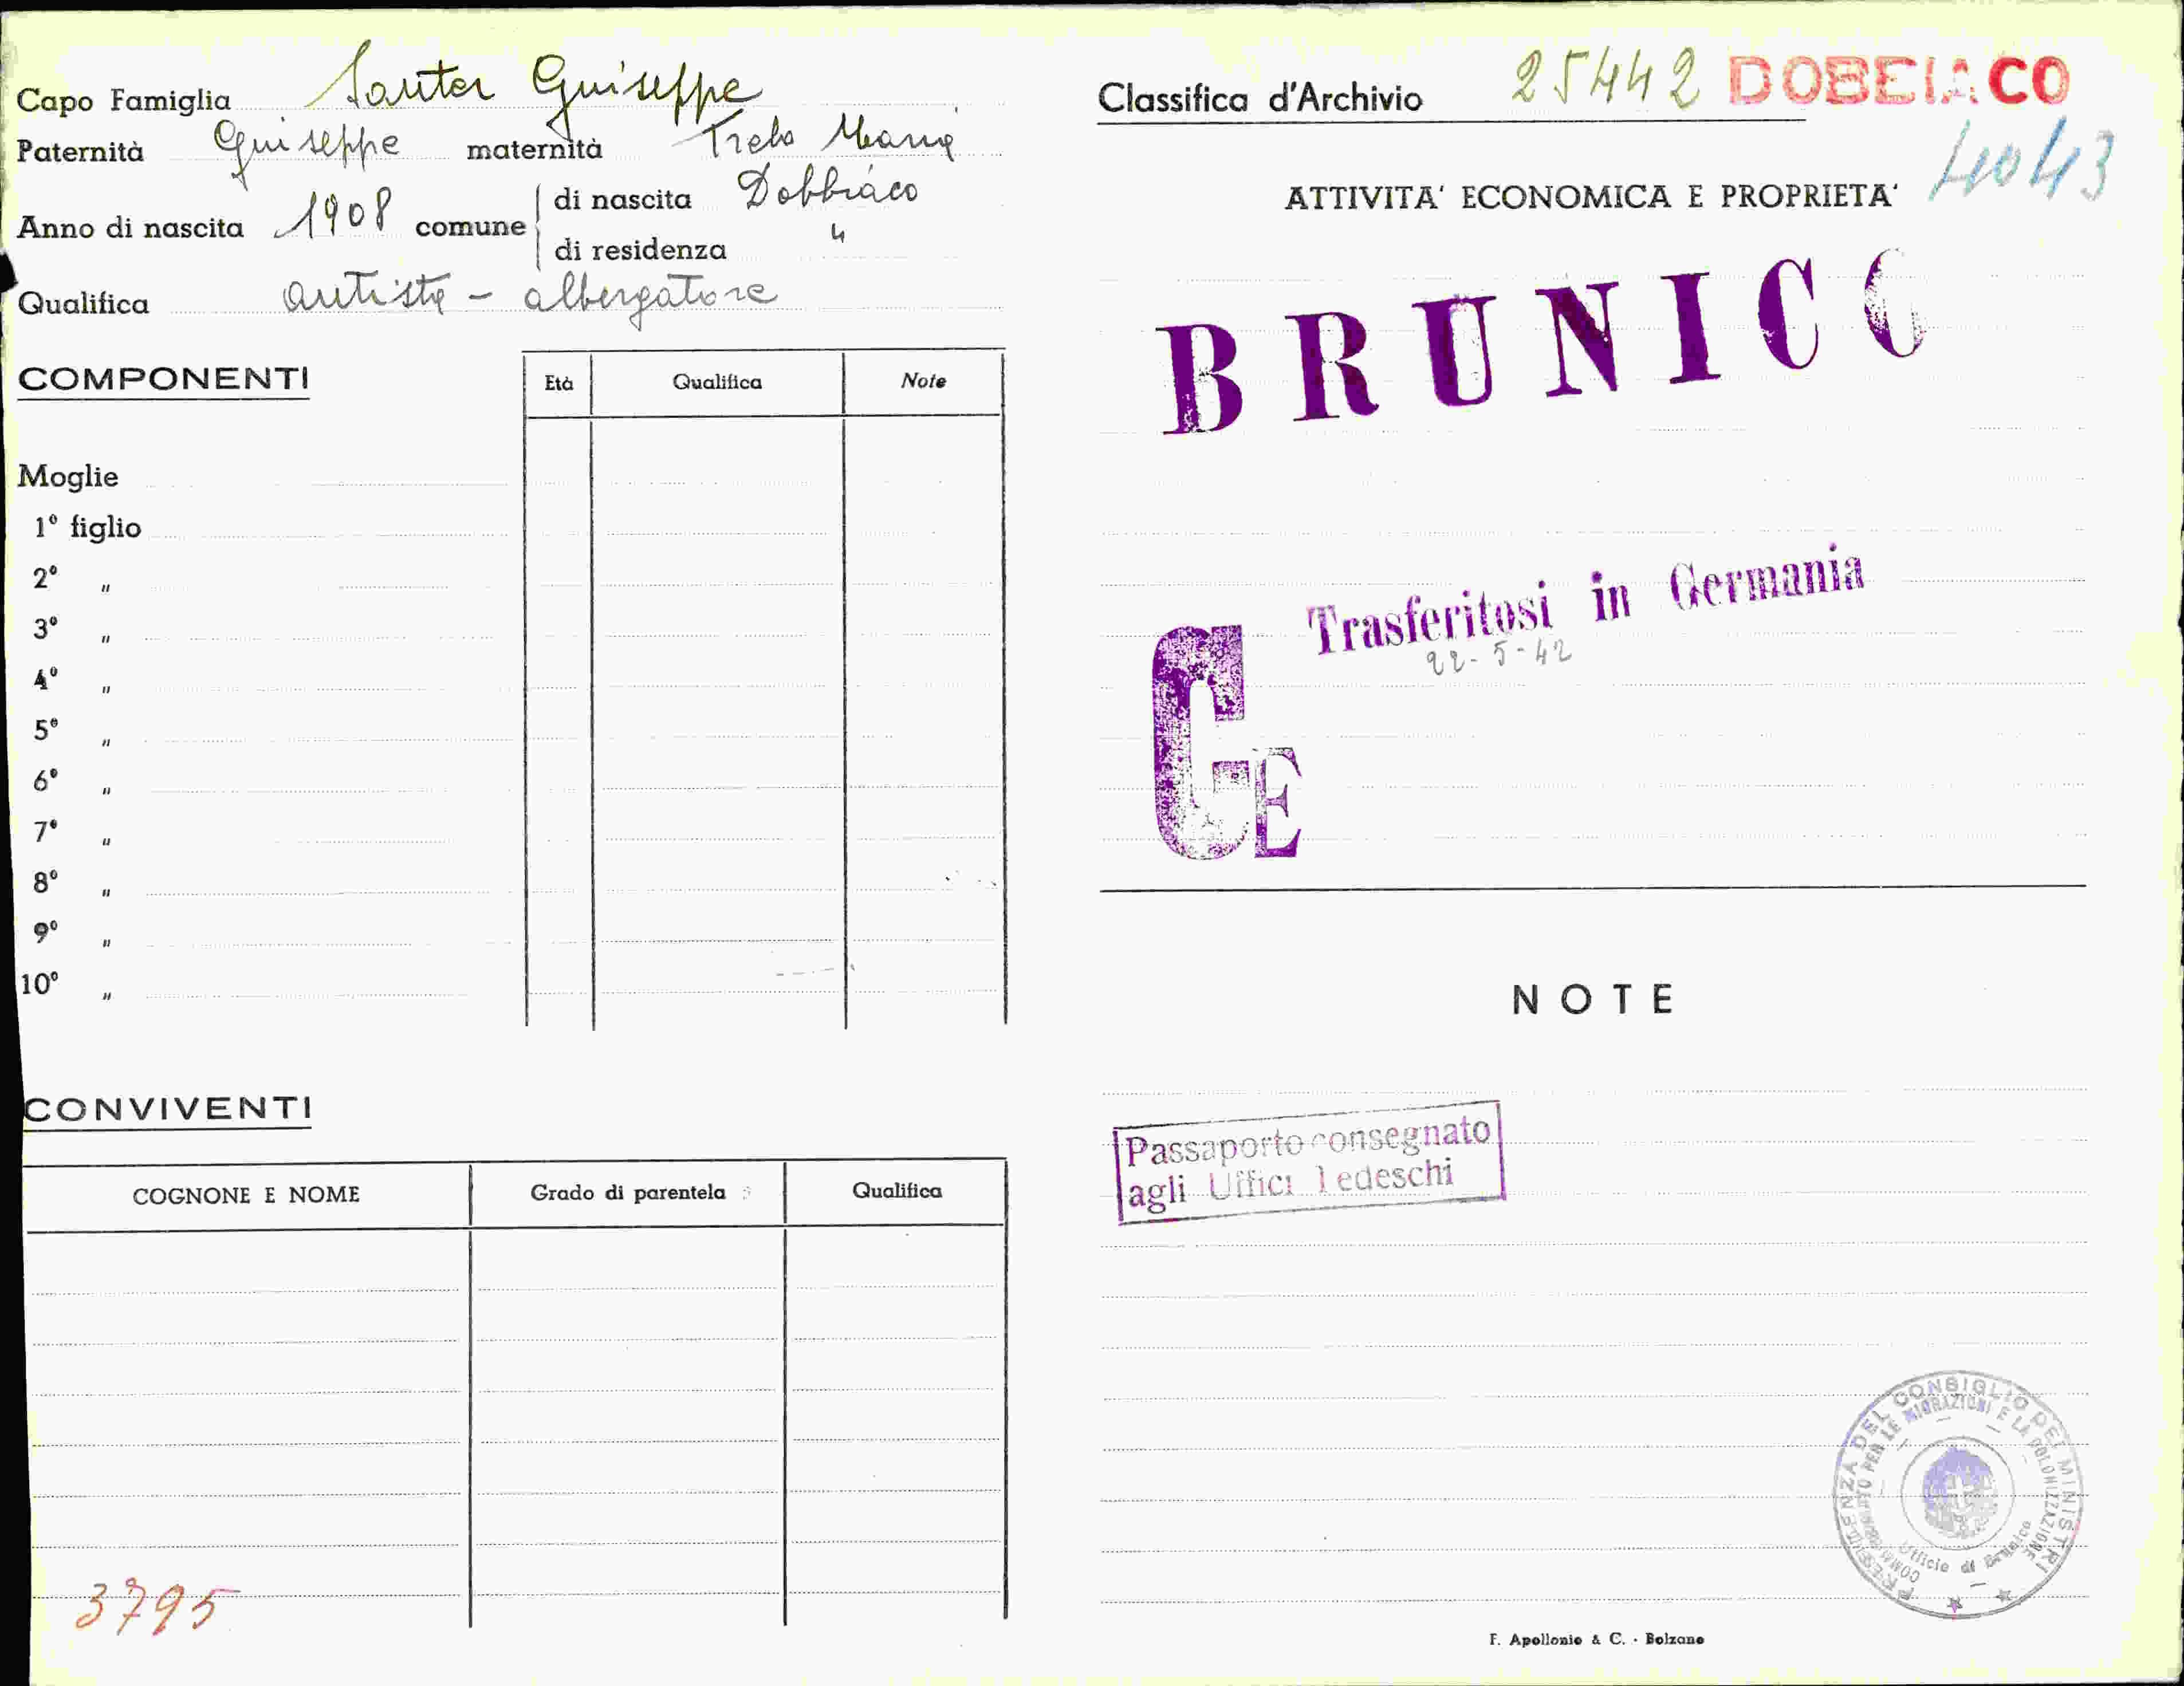 Capo Famiglia Santer Giuseppe
Paternità Giuseppe maternità Trebo Maria
Anno di nascita 1908 comune di nascita Dobbiaco
di residenza "
Qualifica autista - albergatore
COMPONENTI Età Qualifica Note
Moglie
1º figlio
2º "
3º "
4º "
5º "
6º "
7º "
8º "
9º "
10º "
CONVIVENTI
COGNONE E NOME Grado di parentela Qualifica
3795
Classifica d'Archivio 25442 DOBBIACO
4043
ATTIVITA' ECONOMICA E PROPRIETA'
BRUNICO
Trasferitosi in Germania
22-5-42
GE
NOTE
Passaporto consegnato
agli Uffici Tedeschi
PRESIDENZA DEL CONSIGLIO DEI MINISTRI
COMMISSARIATO PER LE MIGRAZIONI E LA COLONIZZAZIONE
Ufficio di Brunico
F. Apollonio & C. - Bolzano